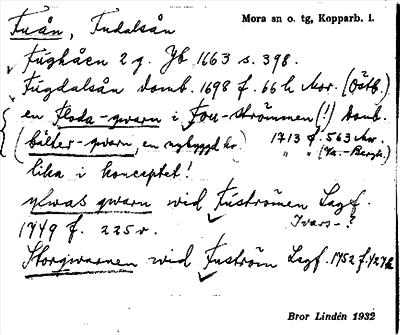 Fuån, Fudalsån
Mora sn o. tg, Kopparb. l.
Fughåen 2 g. Jb 1663 s. 398.
Fugdalsån Domb. 1698 f. 66 h Mor. (Östb.)
en Floda-qwarn i Fou-strömmen (!) Domb.
(bälter-qwarn, en nybyggd kv. 1713 f. 563 Mor.
" " (Va.-Bergk.)
lika i konceptet!
ykwas qwarn wid Fuströmen Lagf.
1749 f. 225 v. Ivars-?
Storqwarnen wid Fuström Lagf. 1752 f. 427 h
Bror Lindén 1932